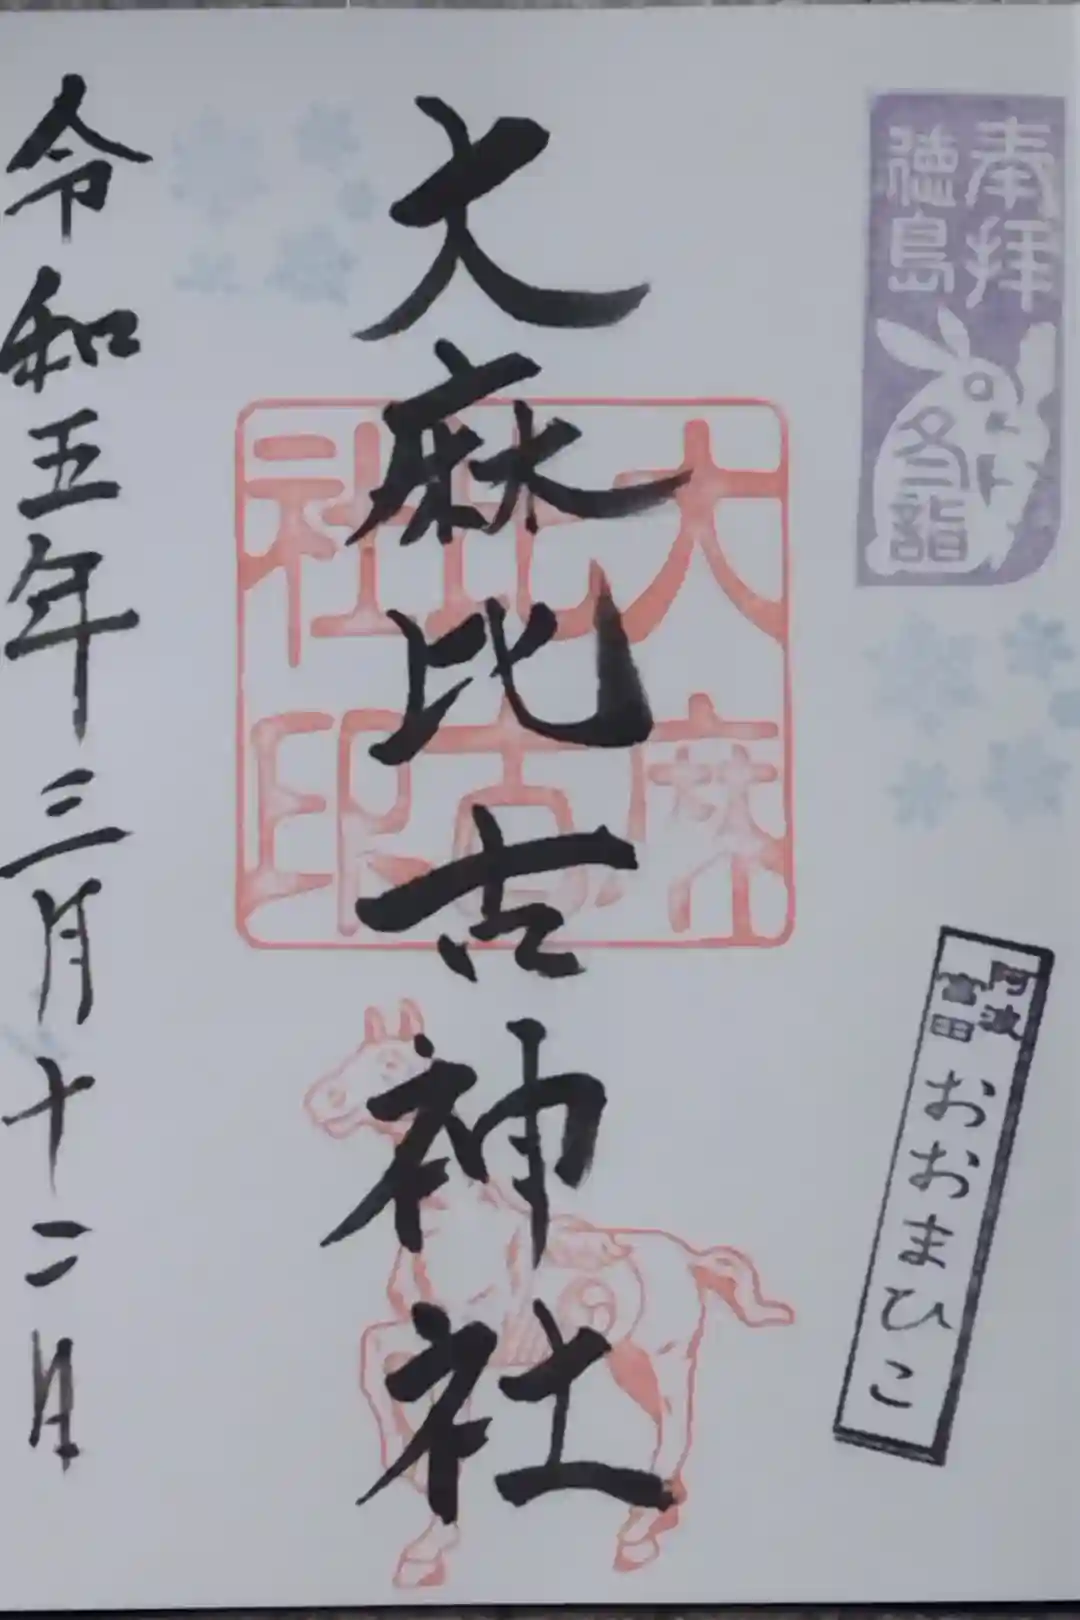 奉拝
徳島
冬詣
阿波
富田
おおまひこ
大麻比古神社
大麻
比古
社印
令和五年三月十二日